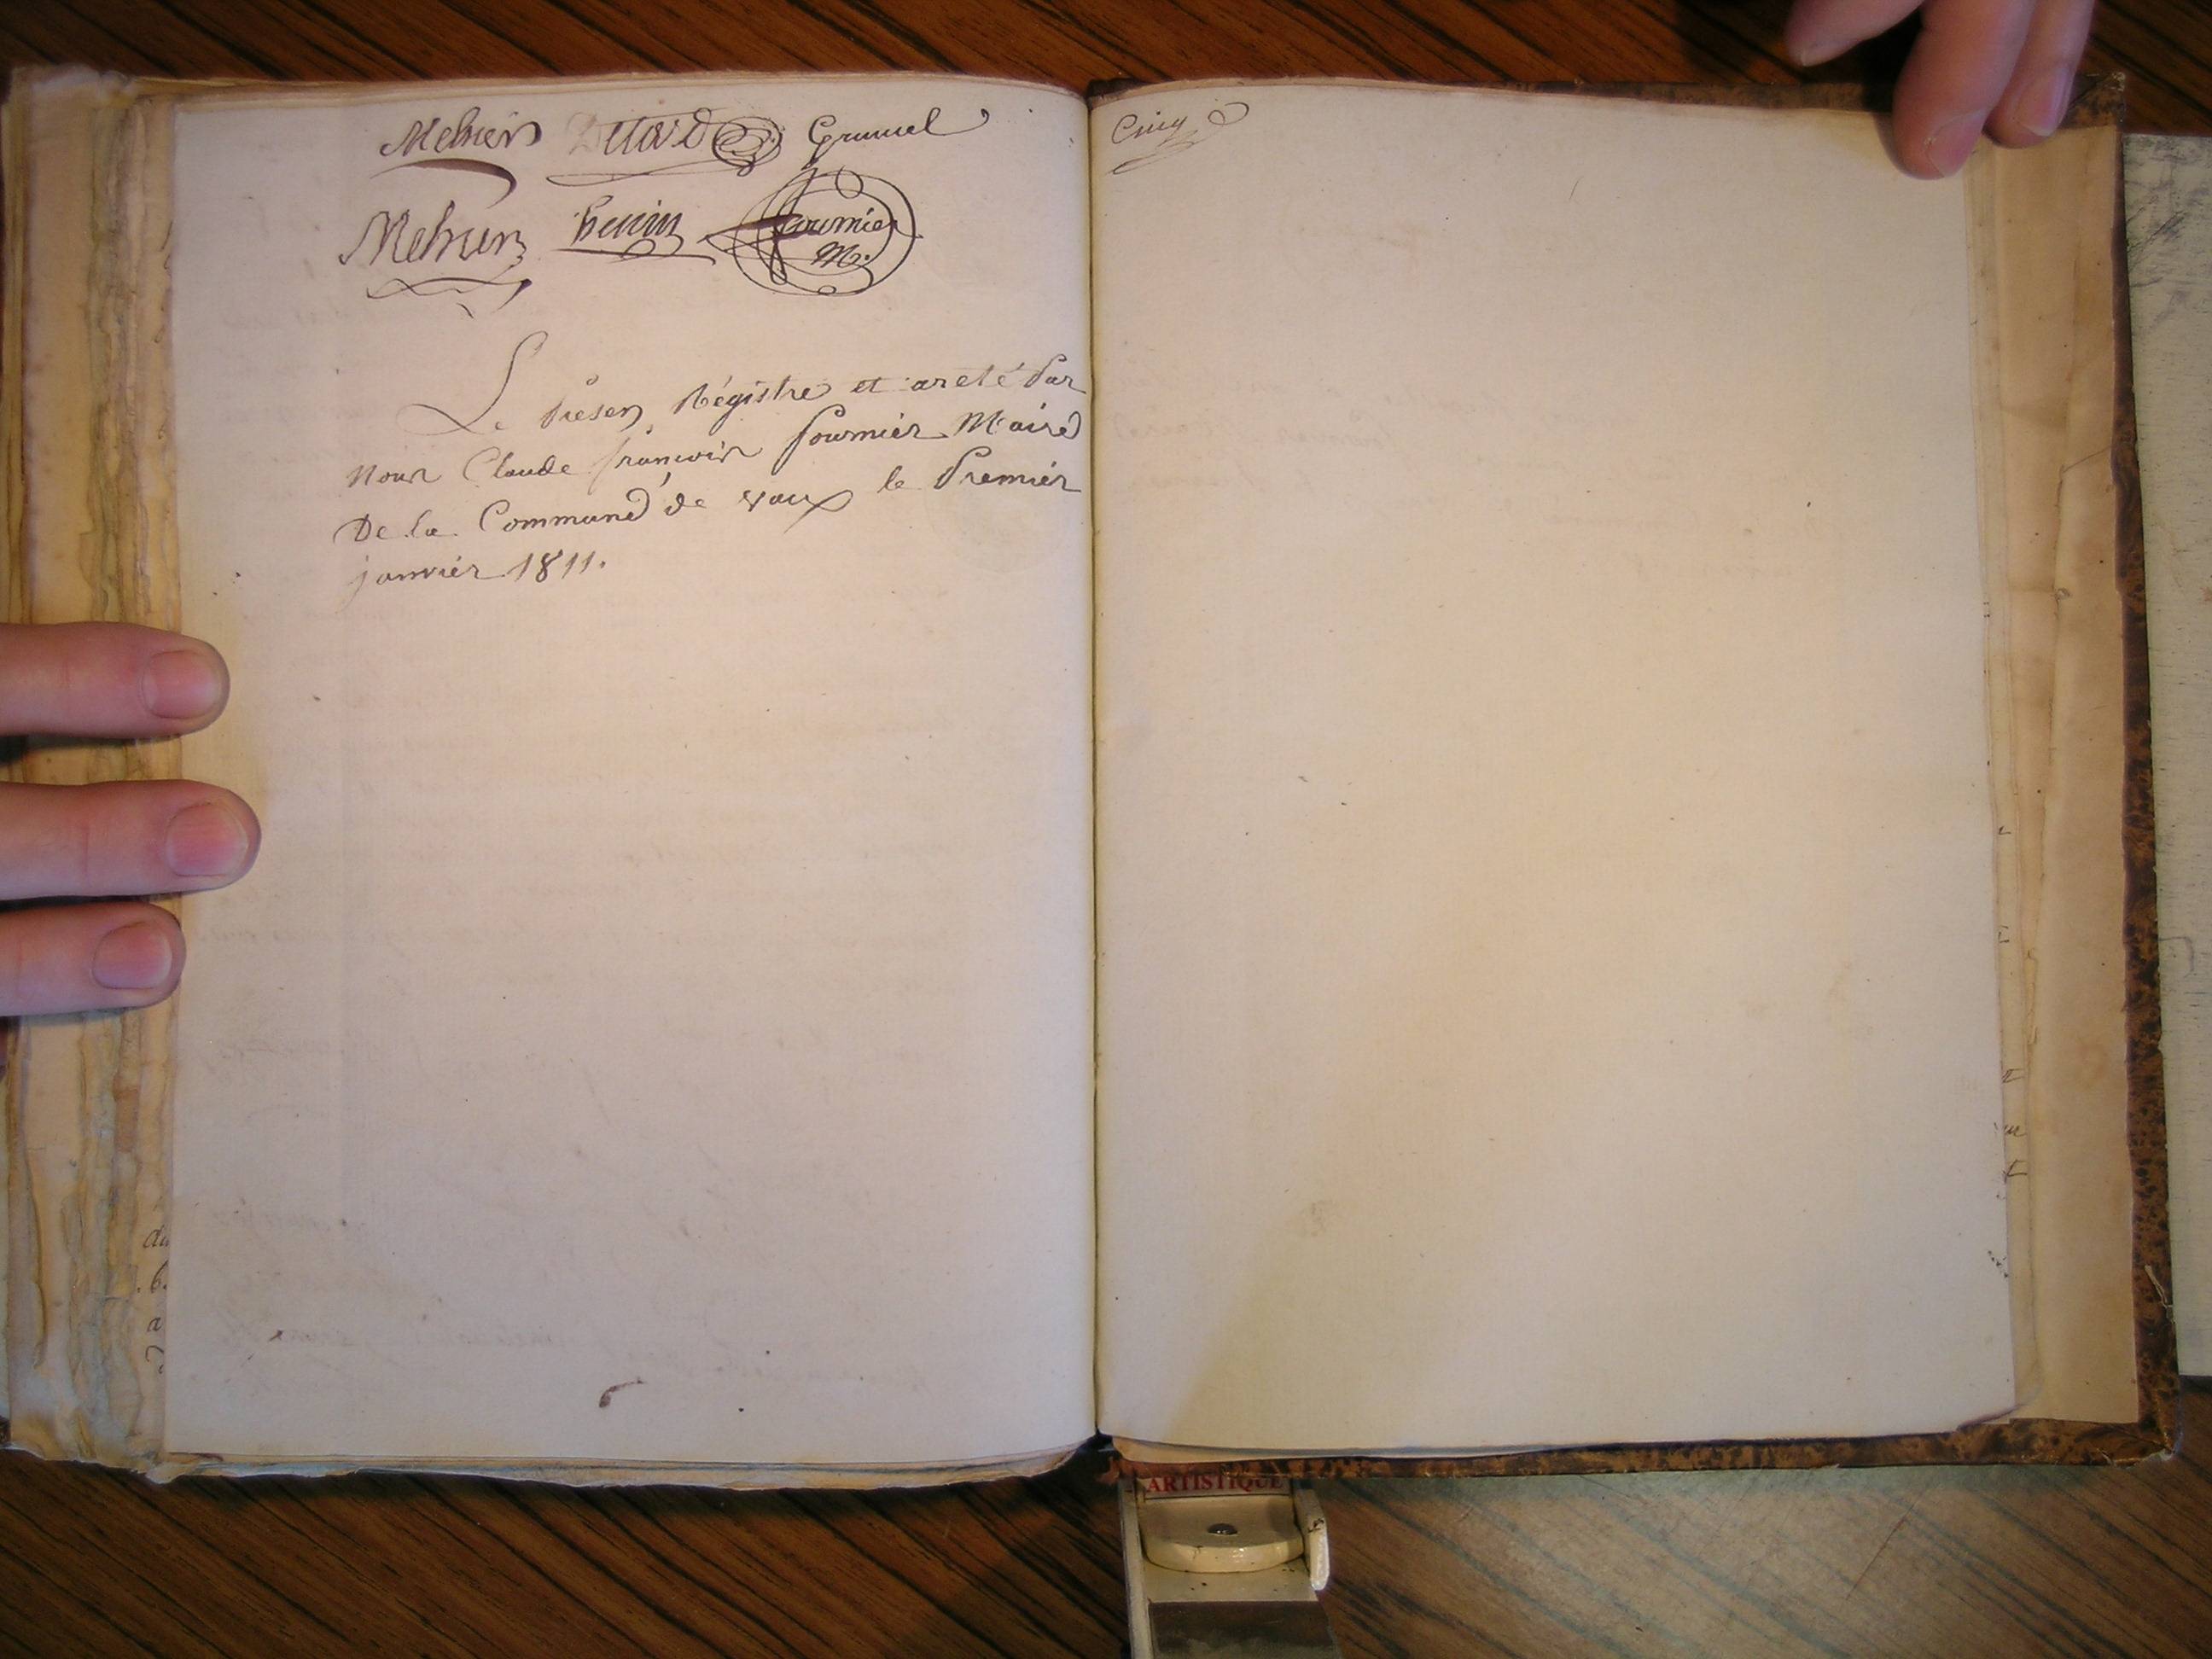 Melnier Grumel
Melnier henin fournier
M.
Le presen Régistre et areté Par
Nous Claude françois fournier Maire
De la Commune de vaux le Premier
janvier 1811.
Cinq
ARTISTIQUE